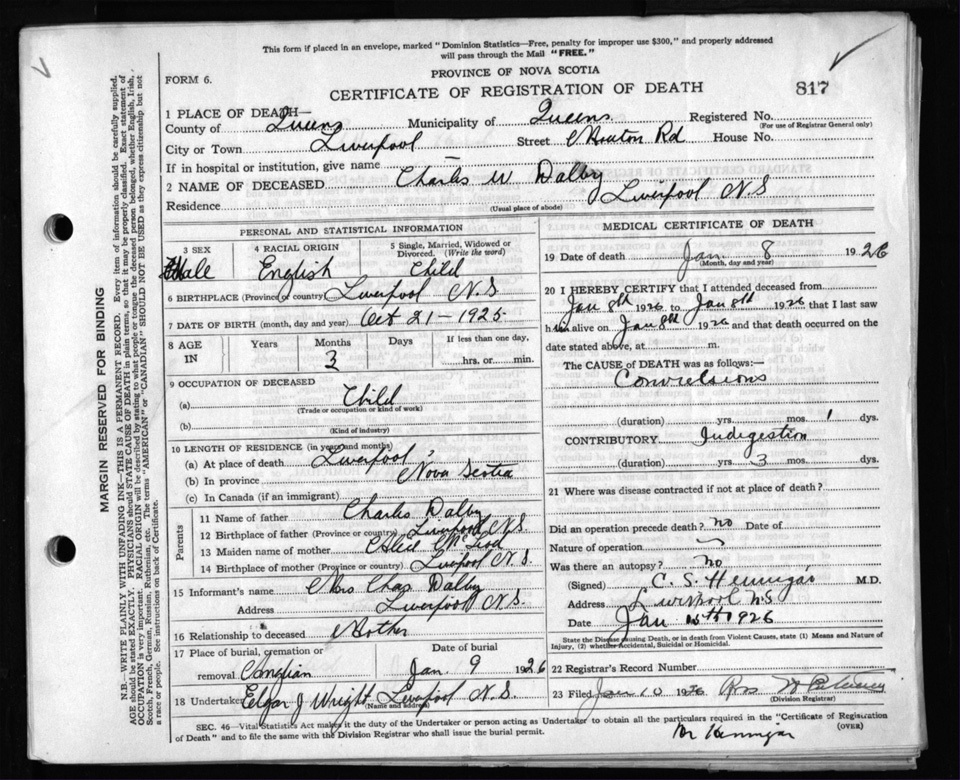 This form if placed in an envelope, marked "Dominion Statistics—Free, penalty for improper use $300," and properly addressed
will pass through the Mail "FREE."
FORM 6.
PROVINCE OF NOVA SCOTIA
CERTIFICATE OF REGISTRATION OF DEATH
817
1 PLACE OF DEATH—
County of Queens Municipality of Queens Registered No.
(For use of Registrar General only)
City or Town Liverpool Street Rd House No.
If in hospital or institution, give name —
2 NAME OF DECEASED Charles W Dalby
Residence Liverpool N.S
(Usual place of abode)
PERSONAL AND STATISTICAL INFORMATION
3 SEX 4 RACIAL ORIGIN 5 Single, Married, Widowed or Divorced. (Write the word)
Male English Child
6 BIRTHPLACE (Province or country) Liverpool N.S
7 DATE OF BIRTH (month, day and year) Oct 21—1925
8 AGE IN Years Months Days If less than one day,
3 hrs. or min.
9 OCCUPATION OF DECEASED
(a) Child
(Trade or occupation or kind of work)
(b)
(Kind of industry)
10 LENGTH OF RESIDENCE (in years and months)
(a) At place of death Liverpool,
(b) In province Nova Scotia
(c) In Canada (if an immigrant)
Parents
11 Name of father Charles Dalby
12 Birthplace of father (Province or country) Liverpool N.S
13 Maiden name of mother
14 Birthplace of mother (Province or country) Liverpool N.S.
15 Informant's name Mrs Chas Dalby
Address Liverpool N.S.
16 Relationship to deceased Mother
17 Place of burial, cremation or removal Date of burial
Anglian Jan 9 1926
18 Undertaker Edgar J Wright Liverpool N.S.
(Name and address)
MEDICAL CERTIFICATE OF DEATH
19 Date of death Jan 8 1926
(Month, day and year)
20 I HEREBY CERTIFY that I attended deceased from
Jan 8th 1926 to Jan 8th 1926 that I last saw
him alive on Jan 8th 1926 and that death occurred on the
date stated above, at m.
The CAUSE OF DEATH was as follows:—
Convulsions
(duration) yrs. mos. 1 dys.
CONTRIBUTORY Indigestion
(duration) yrs. 3 mos. dys.
21 Where was disease contracted if not at place of death?
Did an operation precede death? no Date of
Nature of operation —
Was there an autopsy? no
(Signed) C. S. Hennigar M.D.
Address Liverpool N.S
Date Jan 1926
State the Disease causing Death, or in death from Violent Causes, state (1) Means and Nature of
Injury, (2) whether Accidental, Suicidal or Homicidal.
22 Registrar's Record Number
23 Filed Jan 10 1926
(Division Registrar)
SEC. 46—Vital Statistics Act makes it the duty of the Undertaker or person acting as Undertaker to obtain all the particulars required in the "Certificate of Registration
of Death" and to file the same with the Division Registrar who shall issue the burial permit.
(OVER)
Hennigar
MARGIN RESERVED FOR BINDING
N.B.—WRITE PLAINLY WITH UNFADING INK—THIS IS A PERMANENT RECORD. Every item of information should be carefully supplied.
AGE should be stated EXACTLY. PHYSICIANS should STATE CAUSE OF DEATH in plain terms, so that it may be properly classified. Exact statement of
OCCUPATION is very important. RACIAL ORIGIN will be described by stating to what people or tongue the deceased person belonged, whether English, Irish,
Scotch, French, German, Russian, Ruthenian, etc. The terms "AMERICAN" or "CANADIAN" SHOULD NOT BE USED as they express citizenship but not
a race or people. See instructions on back of Certificate.